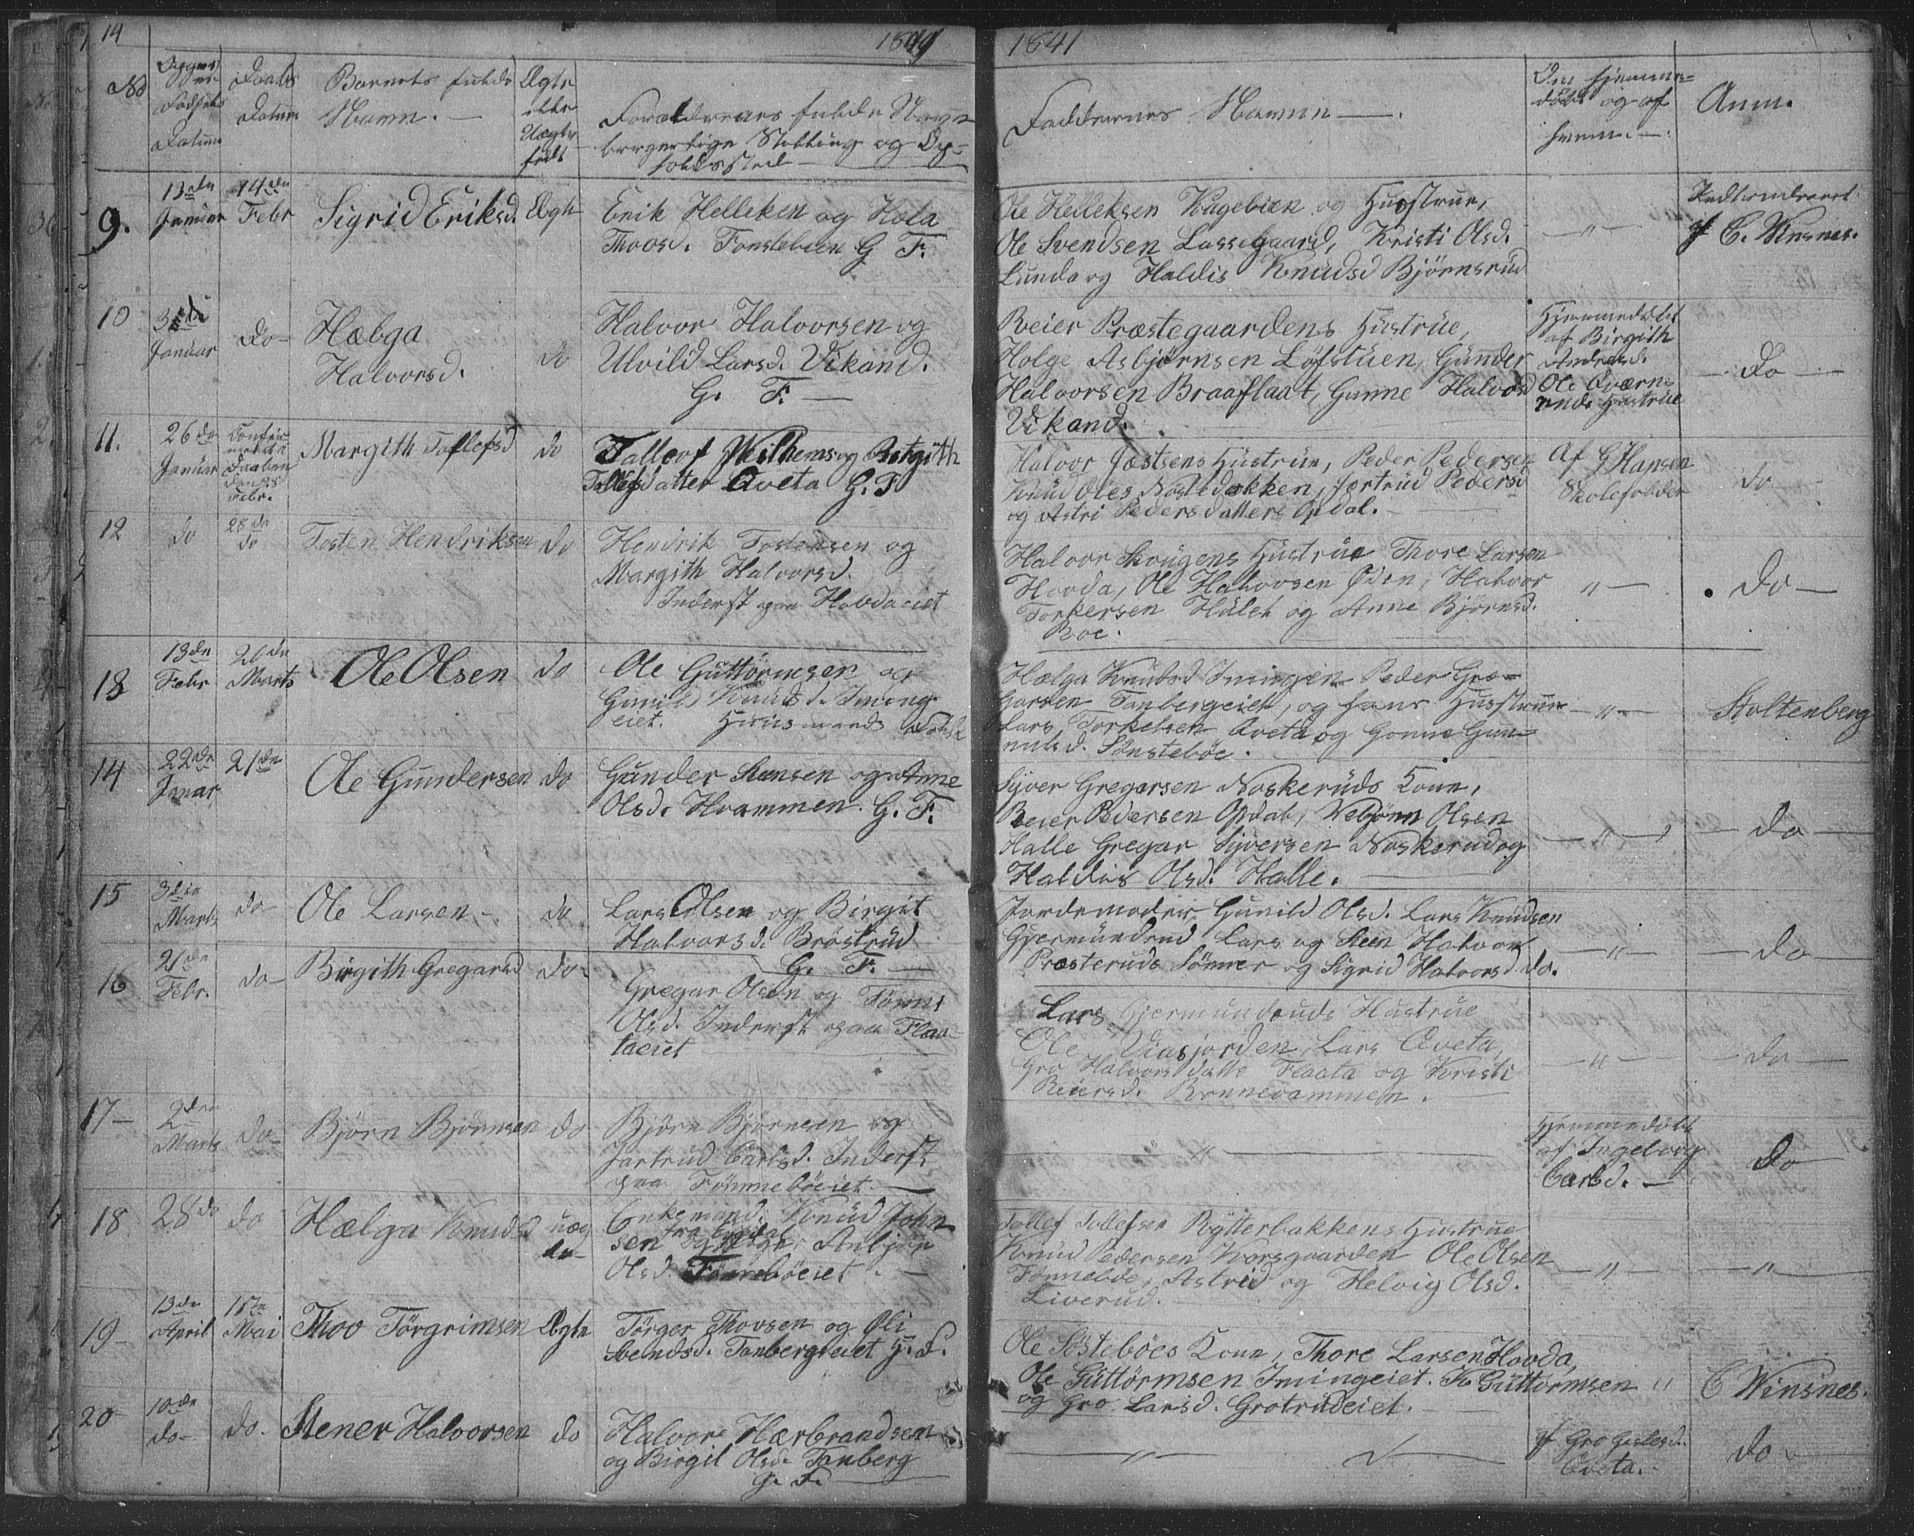 14
1841
1841
No
Daabs
Datum
Barnets fulde
Navn. —
Ægte
eller
Uægte
født
Forældrenes fulde Navn
borgerlige Stilling og Op-
holdssted
Faddernes Navne —.
Om hjemme-
døbt og af
hvem. —
Anm.
9.
13de
Januar
14de
Febr
Sigrid Eriksd.
Ægte
Erik Helleksen og
Thovsd. G F.
Ole Helleksen og Hustrue,
Ole Svendsen Lassegaard, Kristi Olsd.
Lunda og Haldis Knudsd Bjørnsrud
— " —
C. Winsnes.
10
31de
Januar
do —
Hælga
Halvorsd.
do
Halvor Halvorsen og
Ulvild Larsd. Vikand.
G. F. —
Reier Præstegaardens Hustrue,
Holge Asbjørnsen Løfstuen, Gunder
Halvorsen Braaflaat, Gunne Halvorsd
Vikand.
Hjemmedøbt
af Birgith
Andersd.
Ole Qværn-
Hustrue
— do —
11.
26de
Januar
Febr.
Margith Tollefsd
do
Tollof Wilhemsog Birgith
Tollefsdatter Qveta G. F
Halvor Jøstsens Hustrue, Peder Pedersen
Knud Oles Jortrud Pedersd
og Astri Pedersdatter Opdal. —
Af G Hansen
Skoleholder
do —
12
do
28de
do
Tosten Hendriksen
do
Hendrik Tostensen og
Margith Halvorsd.
Inderst paa Hovdaeiet
Halvor Skougens Hustrue Thore Larsen
Hovda, Ole Halvorsen Øden, Halvor
Torkersen Hulet og Anne Bjørnsd.
Roe.
" —
do —
13
13de
Febr
26de
Marts
Ole Olsen
do
Ole Guttormsen og
Gunild Knudsd. Iming-
eiet. Huusmands
Hælga Knudsd Imingen Peder Gre-
Tonbergeiet, og hans Husstrue
Lars Torkelsen Qveta og Gonne Gun-
nulsd. Sønstebøe.
— " —
Stoltenberg
14
22de
Janar
21de
Ole Gundersen
do
Gunder Stensen og Anne
Olsd. Hvammen. G. F.
Syver Gregarsen Noskeruds Kone,
Reier Pedersen Opdal, Vebjønn Olsen
Halle Gregar Syversen Noskerud og
Haldis Olsd. Halle. —
— " —
— do —
15
3die
Marts
do
Ole Larsen —
do
Lars Olsen og Birgit
Halvorsd. Brøstrud
G. F. —
Jordemoder Gunild Olsd. Lars Knudsen
Gjermundrud Lars og Steen Halvors
Præsteruds Sønner og Sigrid Halvorsd do.
— " —
— do —
16
21de
Febr.
do —
Birgith Gregarsd
do-
Gregar Olsen og
Olsd. Inderst paa Flaa-
taeiet
Lars Gjermundruds Hustrue
Ole Viasjorden, Lars Qveta,
Gro Halvorsdatte Flaata og Kristi
Reiersd. Rønnevammen.
— " —
— do —
17 —
2den
Marts
do-
Bjørn Bjørnsen
do
Bjørn Bjørnsen og
Jartrud Carlsd. Inderst
paa Fønnebøeiet. —
— " —
Hjemmedøbt
af Ingeborg
Carlsd. —
do
18
28de
do
Hælga Knudsd
uæg
do-
Enkemand Knud John
sen og Pige Anbjør
Olsd. Fønnebøeiet. —
Tollef Tollefsen Rytterbakkens Hustrue
Knud Pedersen Korsgaarden Ole Olsen
Fønnebøe, Astrid og Helvig Olsd.
Liverud.
— " —
— " —
19 —
13de
April
Mai
Thov Törgrimsen
Ægte
Törger Thovsen og Oli
Svendsd. Tonbergeiet G. F.
Ole Söstebøes Kone, Thore Larsen Hovda,
Ole Guttormsen Imingeiet. Guttormsen
og Gro Larsd. Grotrudeiet. —
"
C Winsnes.
20 —
10de
do-
do-
Stener Halvorsen
do
Halvor Hærbrandsen
og Birgit Olsd. Tonberg
G. F. —
— " —
af Gro Gislesd.
Qveta. —
do -